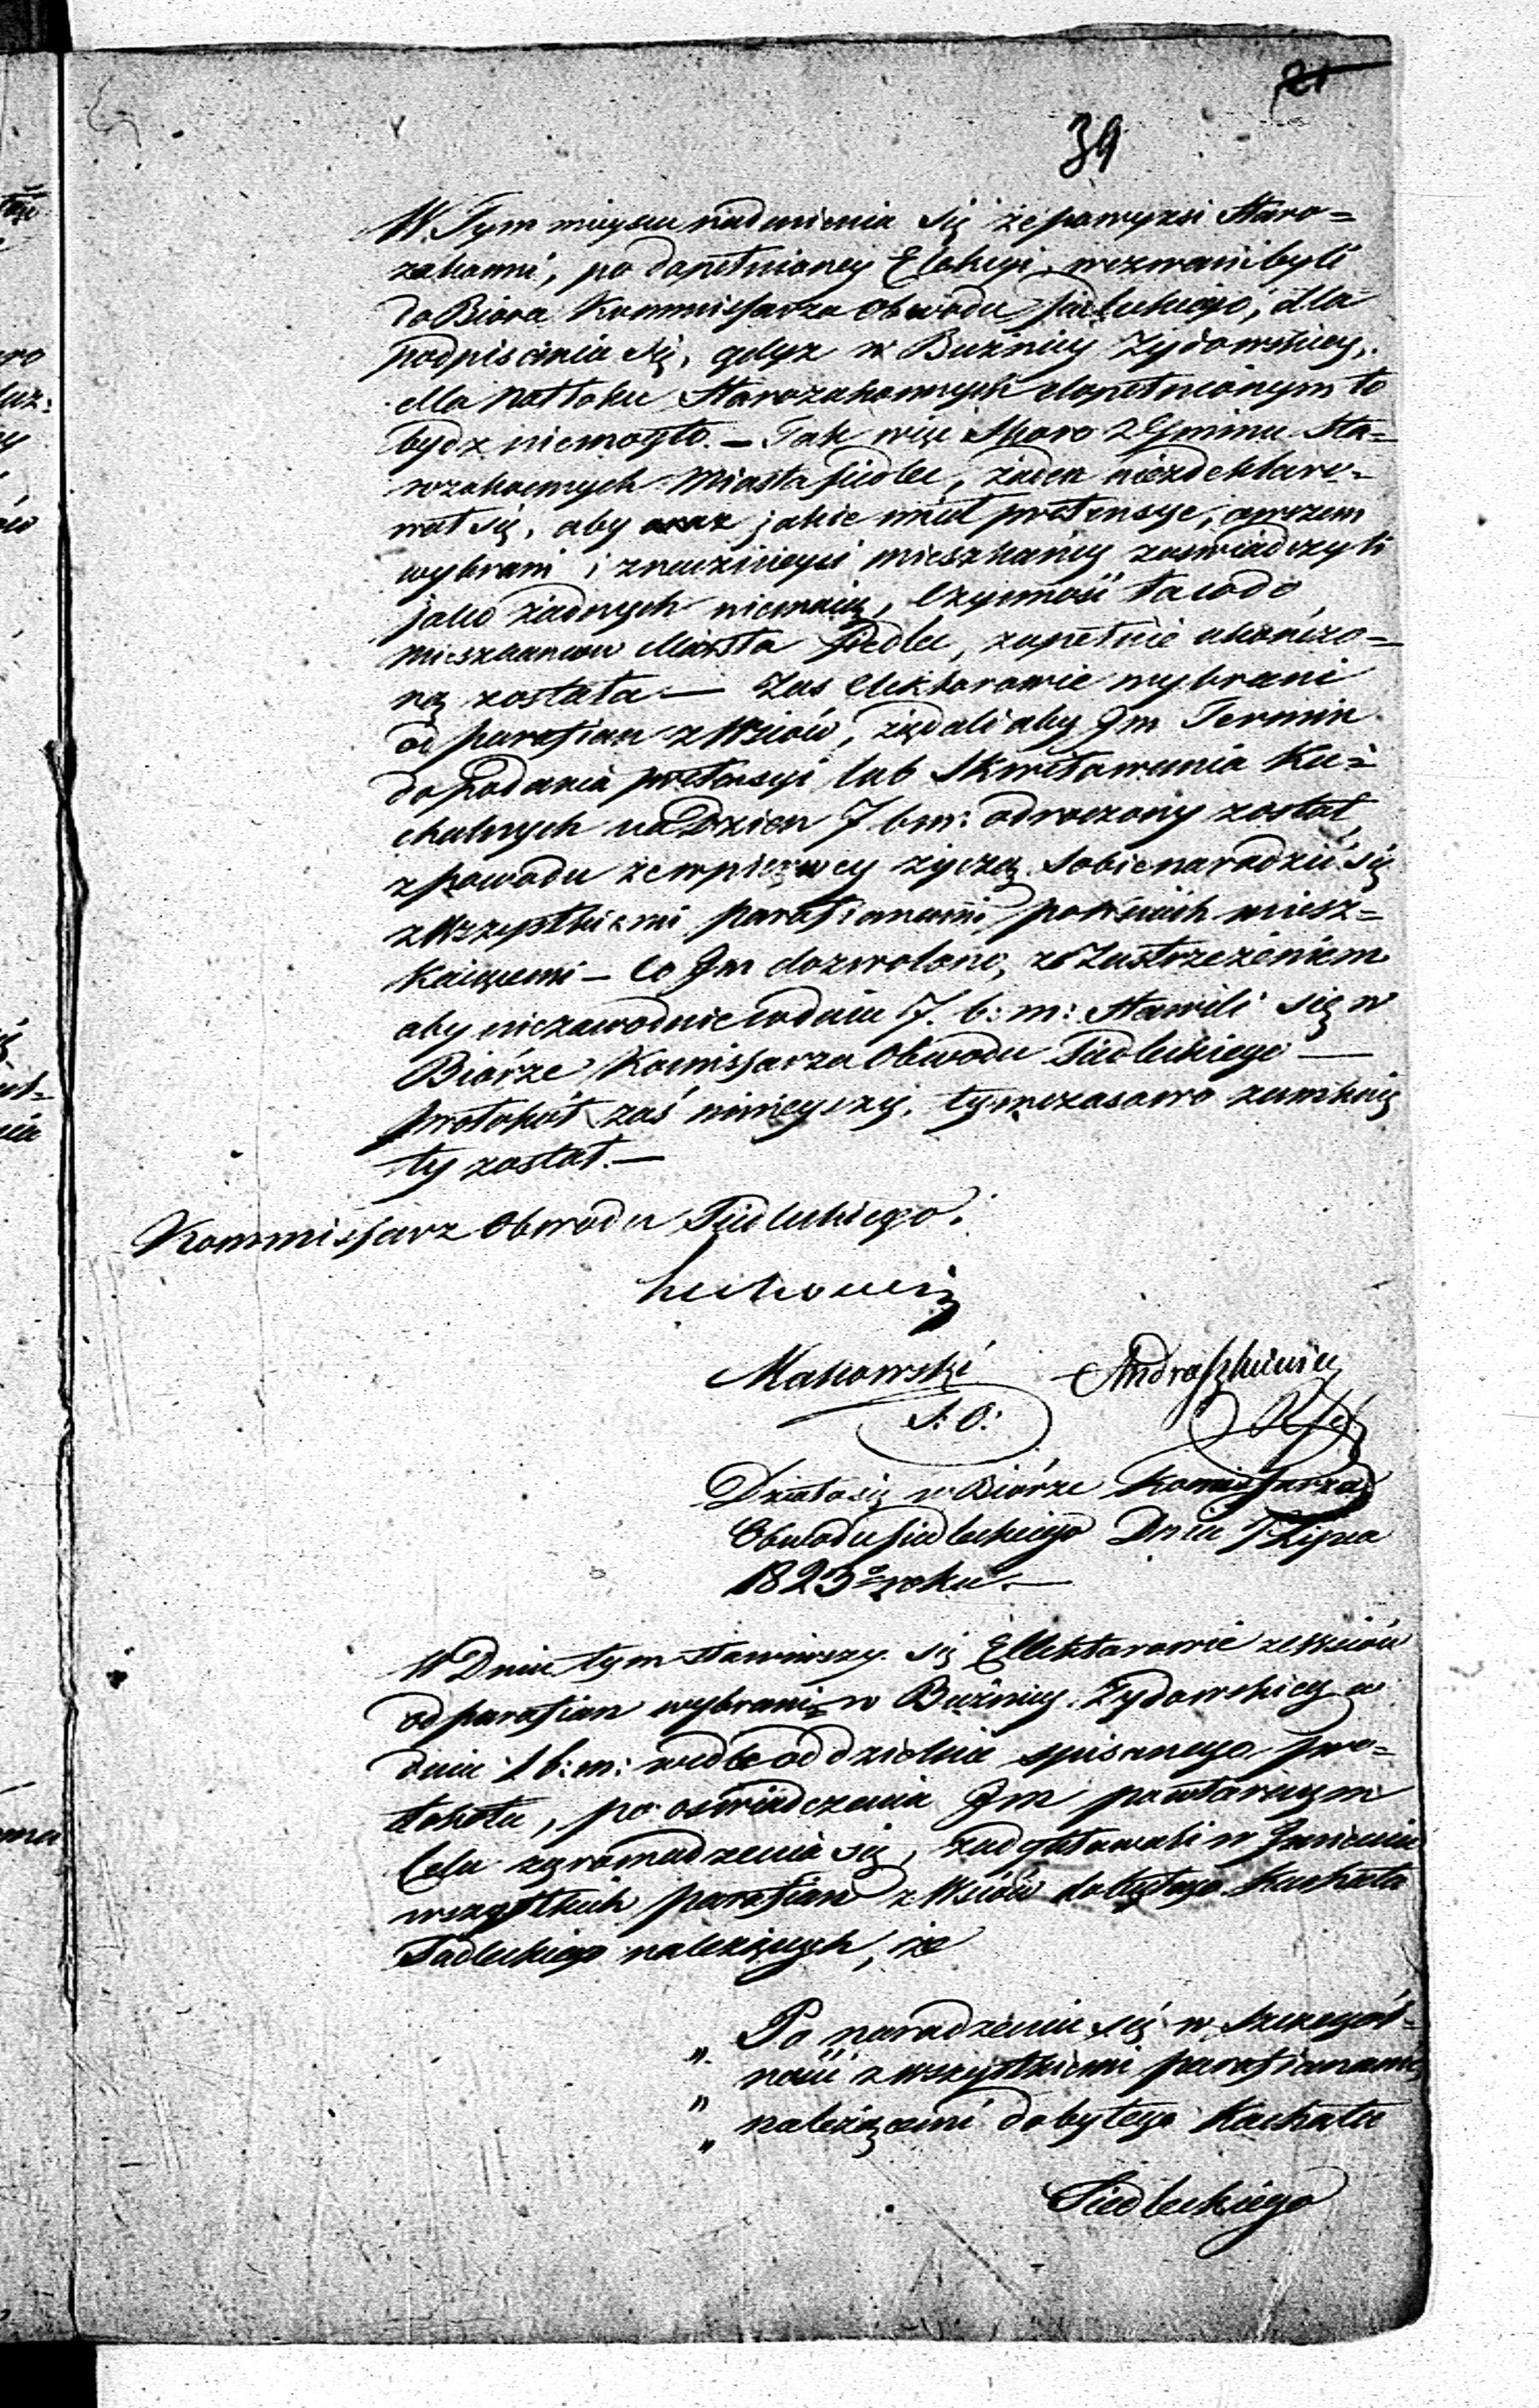 39
W Tym mieyscu nadmienia się że powyżsi Staro=
zakonni, po dopełnioney Elekcyi, wezwani byli
do Biora Kommissarza Obwodu Siedleckiego, dla
podpisania się, gdyż w Bużnicy Zydowskiey,
dla natłoku Starozakonnych dopełnionym to
bydz niemogło. — Tak więc skoro z Gminu Sta=
rozakonnych Miasta Siedlec, żaden niezdeklaro=
wał się, aby jakie miał pretensye, a
wybrani i znacznieysi mieszkańcy zaświadczyli
jako żadnych niemaią, Czynność ta co do
mieszkancow Miasta Siedlec, zupełnie ukończo=
ną została — Zas Elektorowie wybrani
od parafian z Wsiów, żądali aby Jm Termin
do podania pretensyi lub skwitowania Ka=
chalnych na Dzien 7 b.m: odroczony został
z powodu że wpierwey życzą sobie naradzić się
z Wszystkiemi parafianami po Wsiach miesz=
kaiącemi — Co Jm dozwolono, ze Zastrzeżeniem
aby niezawodnie w dniu 7. b: m: stawili się w
Biórze Komissarza Obwodu Siedleckiego —
protokół zaś nineyszy, tymczasowo zamknię
ty został. —
Kommissarz Obwodu Siedleckiego.
Makowski
S. O:
Działo się w Biórze Komissarza
Obwodu Siedleckiego Dnia 7 Lipca
1823º roku —
W Dniu tym stawiwszy się Ellektorowie ze Wsiów
od parafian wybrani w Bużnicy Zydowskiey w
dniu 1 b: m: wedle oddzielnie spisanego pro=
tokołu, po oświadczeniu Jm powtórnym
Celu zgromadzenia się, w Jmieniu
wszystkich parafian z Wsiów do byłego Kachału
Siedleckiego należących, że
„ Po naradzeniu się w szczegól=
„ ności z wszystkiemi parafianami,
„ należącemi do byłego Kachału
Siedleckiego